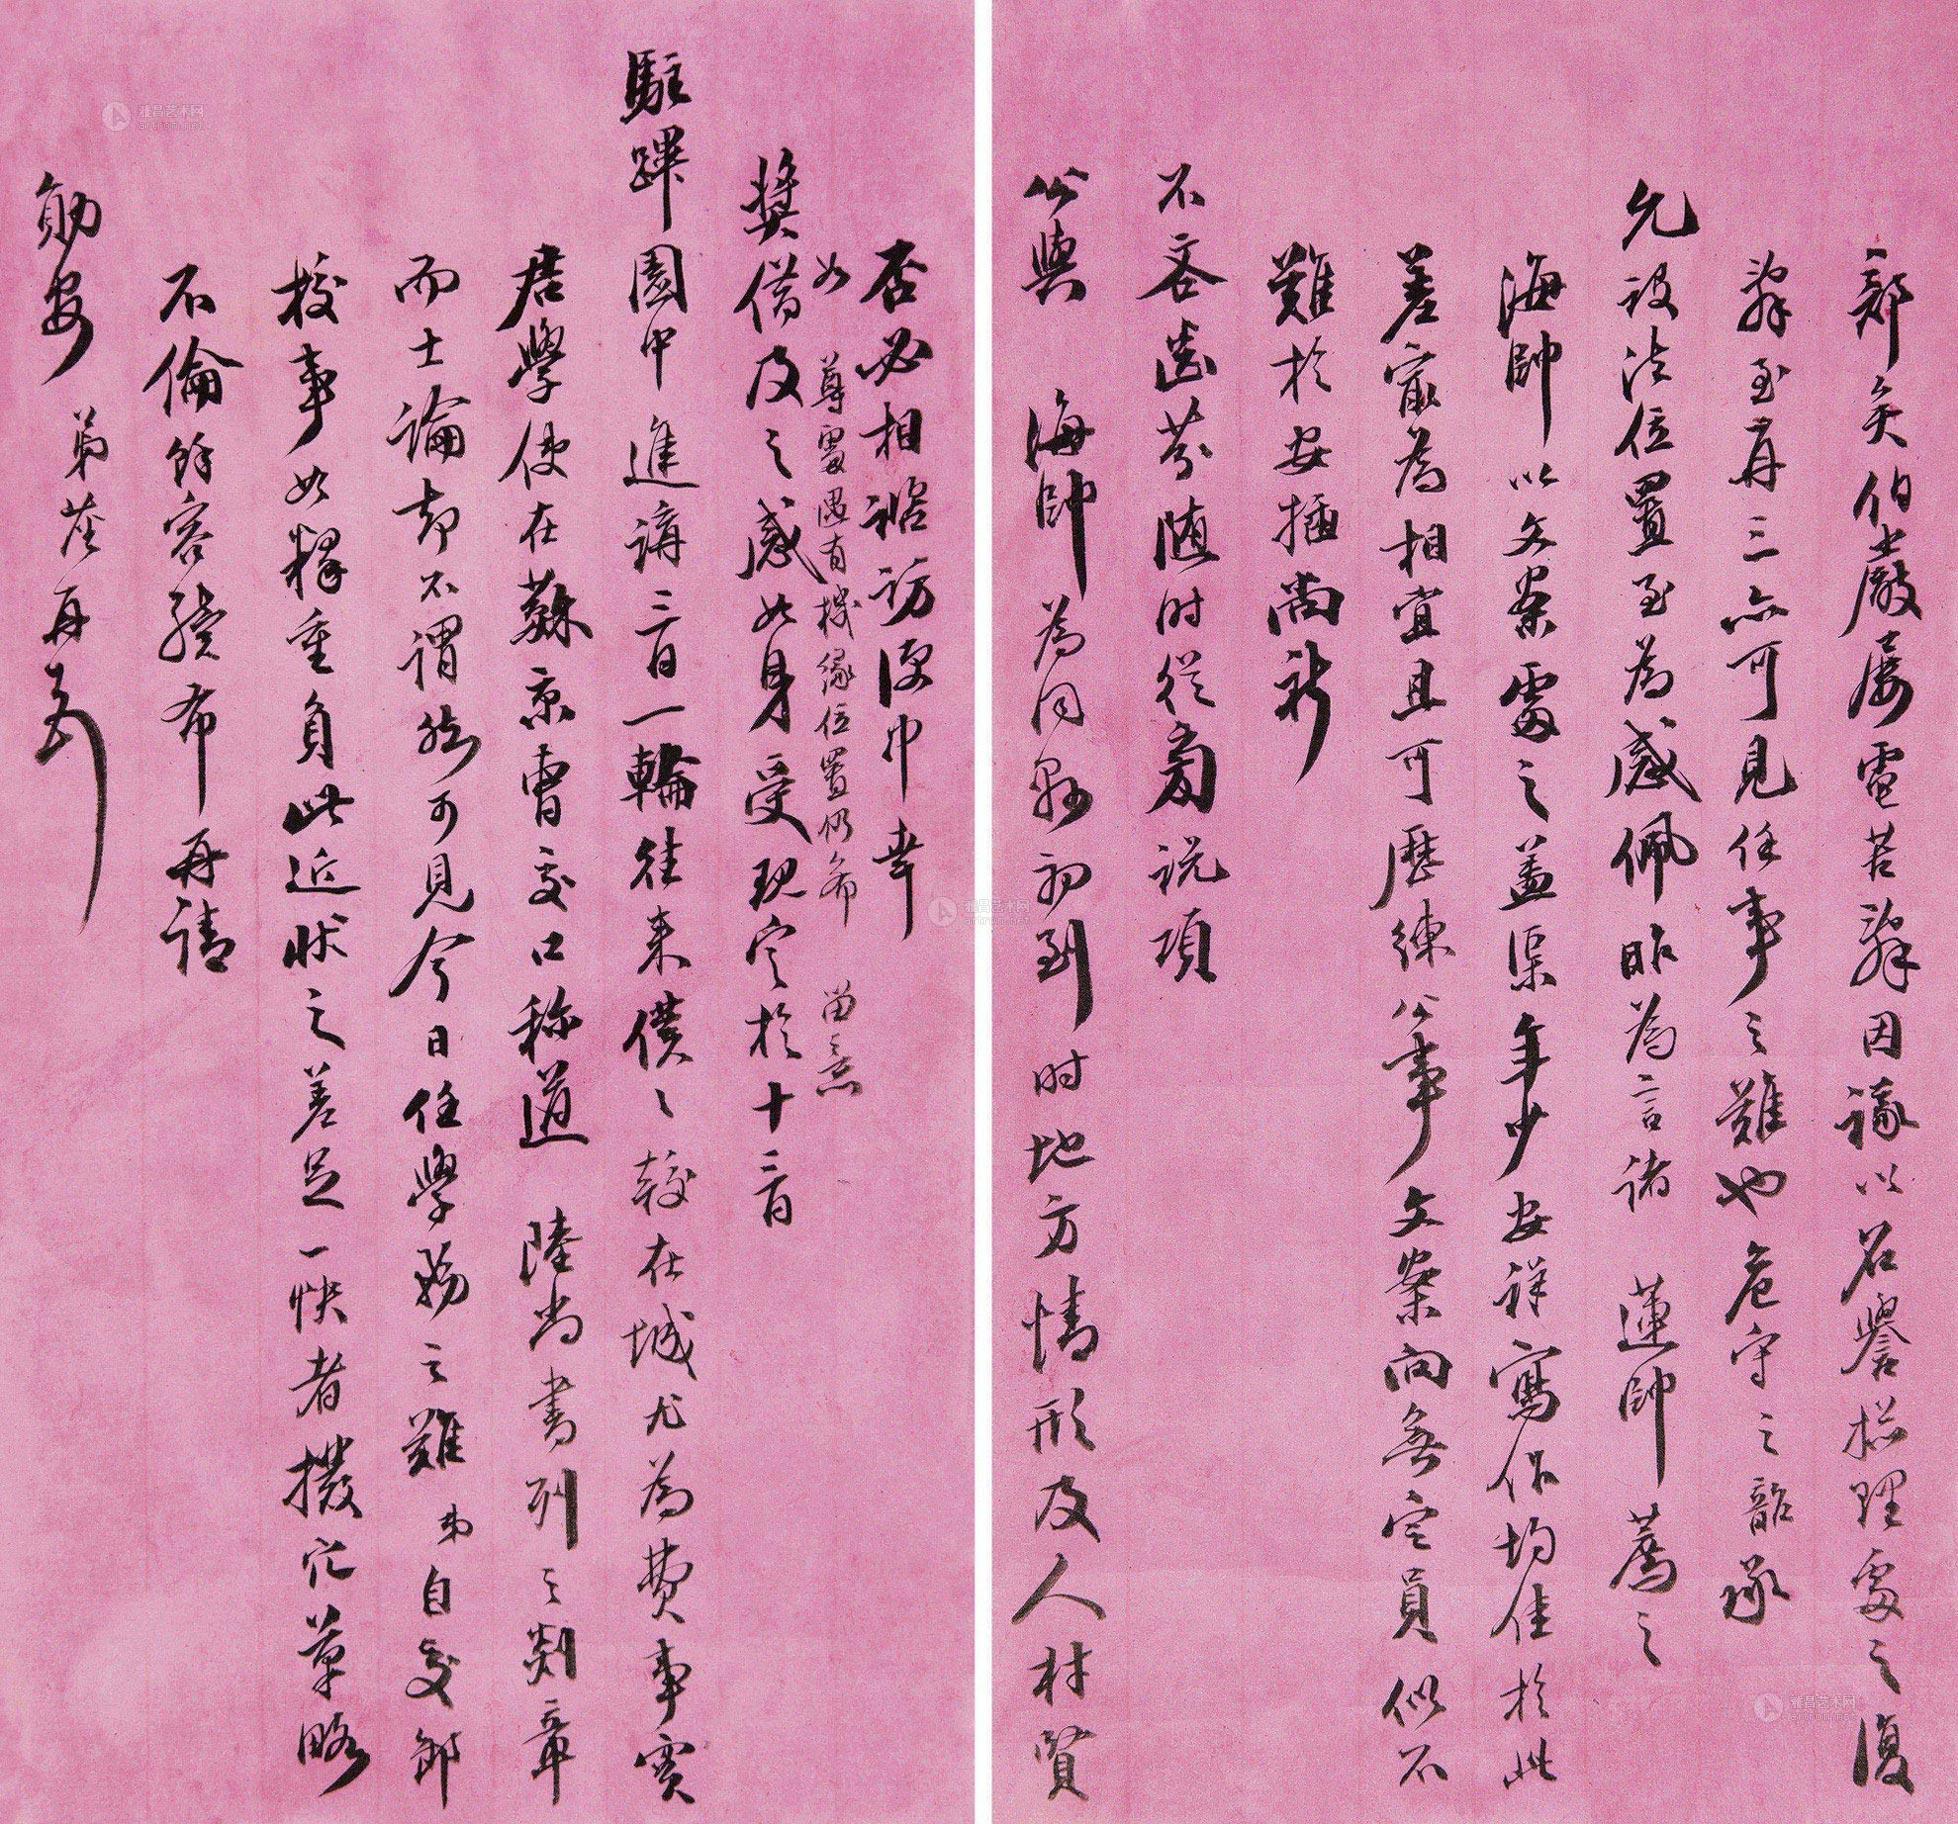 部矣伯嚴屢電苦辭因議以名譽總理處之復
辭至再三亦可見任事之難也危守之韶承
允設法位置至為感佩昨為言諸 蓮帥薦之
海帥以文案處之蓋渠年少安祥寫作均佳於此
差最為相宜且可歷練公事文案向無定員似不
難於安插尚祈
不吝齒芬隨時從旁說項
公與 海帥為同縣初到時地方情形及人材賢
否必相諮訪便中幸
如 尊處遇有機緣位置仍希 留意
獎借及之感如身受現定於十三日
駐蹕園中進講三日一輪往來僕僕較在城尤為費事實
君學使在蘇京曹交口稱道 陸尚書列之剡章
而士論却不謂然可見今日任學務之難 弟自交卸
校事如釋重負此近狀之差足一快者撥冗草略
不倫餘容續布再請
勛安 弟 再頓
雅昌艺术网